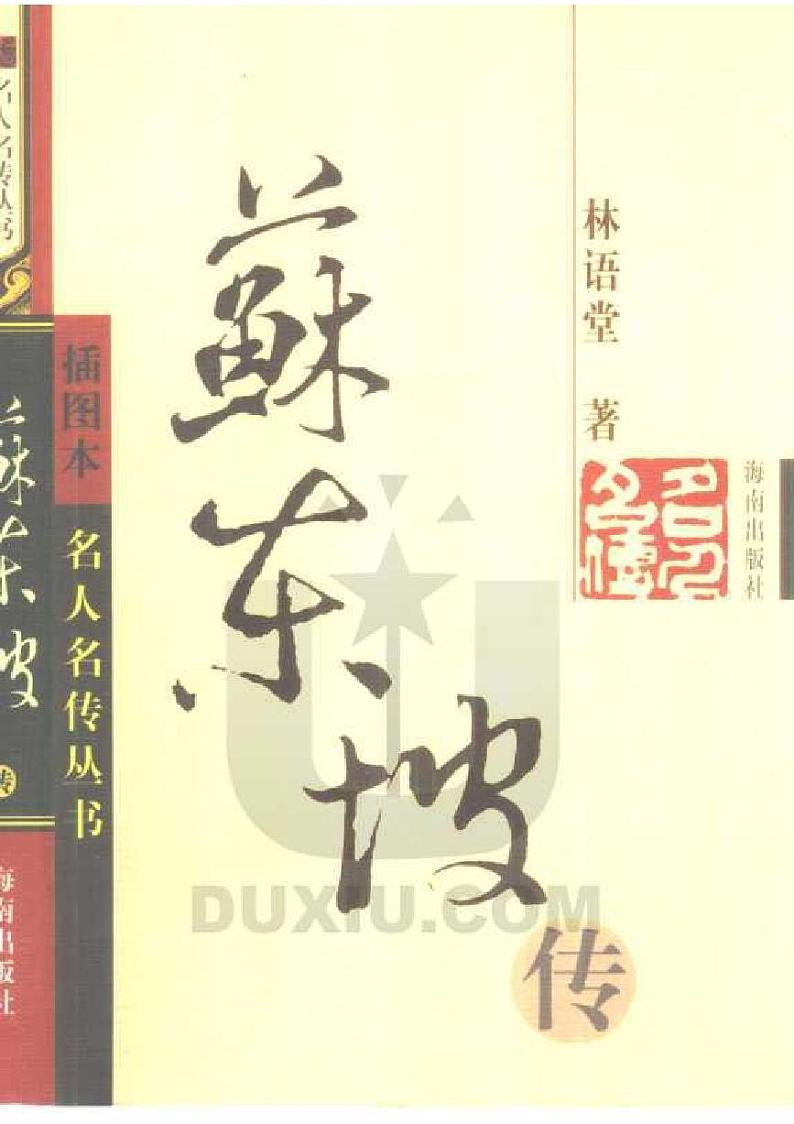 蘇东坡
传
林语堂 著
名人名传
海南出版社
插图本
名人名传丛书
DUXIU.COM
名人名传丛书
蘇东坡
传
海南出版社